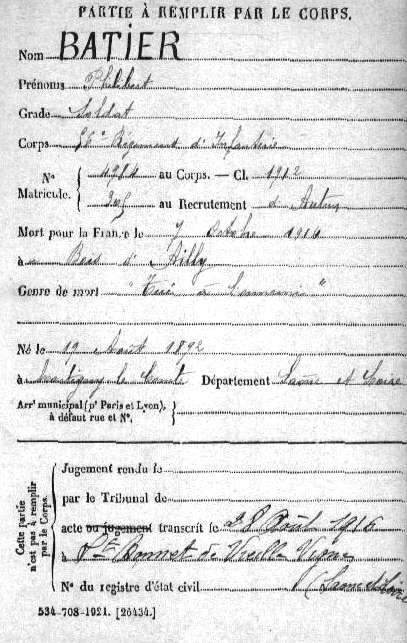 PARTIE À REMPLIR PAR LE CORPS.
Nom BATIER
Prénoms Philibert
Grade Soldat
Corps 56e Régiment d'Infanterie
Nº Matricule. { 4914 au Corps. — Cl. 1912
au Recrutement d'Autun
Mort pour la France le 7 octobre 1914
à Bois d'Ailly
Genre de mort "Tué à l'ennemi"
Né le 19 Août 1892
à Martigny le Comte Département Saône et Loire
Arrt municipal (pr Paris et Lyon),
à défaut rue et Nº.
Cette partie n'est pas à remplir par le Corps.
Jugement rendu le
par le Tribunal de
acte ou jugement transcrit le 28 Août 1916
à St Bonnet de Vieille Vigne
(Saône et Loire
Nº du registre d'état civil
534-708-1921. [26434.]